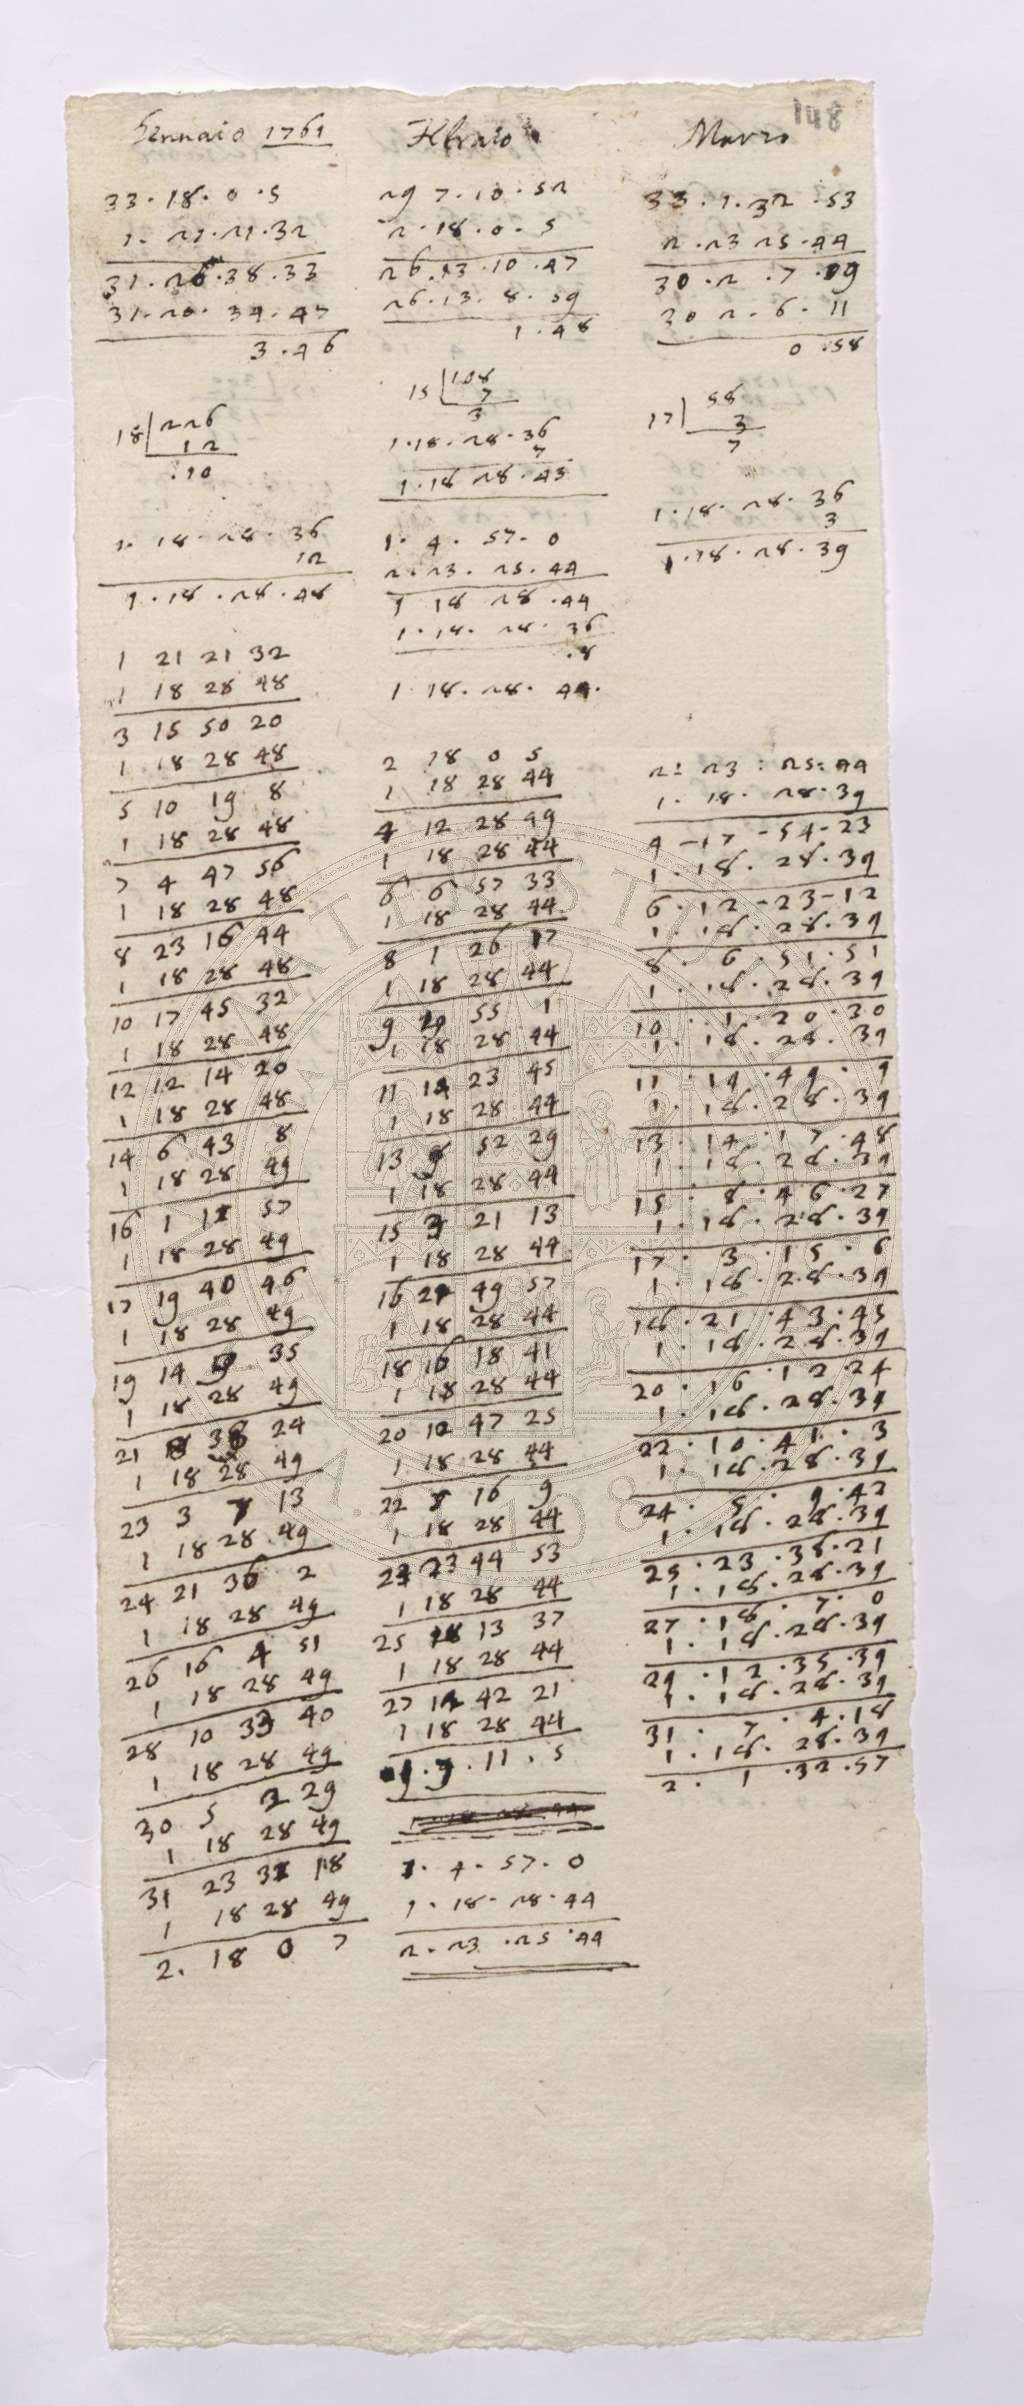 148
Gennaio 1761
33 · 18 · 0 · 5
1 · 21 · 21 · 32
31 · 26 · 38 · 33
31 · 20 · 34 · 47
3 · 46
18 226
12
· 10
1 · 18 · 28 · 36
12
1 · 18 · 28 · 48
1 21 21 32
1 18 28 48
3 15 50 20
1 18 28 48
5 10 19 8
1 18 28 48
7 4 47 56
1 18 28 48
8 23 16 44
1 18 28 48
10 17 45 32
1 18 28 48
12 12 14 20
1 18 28 48
14 6 43 8
1 18 28 49
16 1 11 57
1 18 28 49
17 19 40 46
1 18 28 49
19 14 9 35
1 18 28 49
21 8 38 24
1 18 28 49
23 3 7 13
1 18 28 49
24 21 36 2
1 18 28 49
26 16 4 51
1 18 28 49
28 10 33 40
1 18 28 49
30 5 2 29
1 18 28 49
31 23 31 18
1 18 28 49
2 · 18 0 7
Febraio
29 7 · 10 · 52
2 · 18 · 0 · 5
26 · 13 · 10 · 47
26 · 13 · 8 · 59
1 · 48
15 108
7
3
1 · 18 · 28 · 36
7
1 · 18 28 · 43
1 · 4 · 57 · 0
2 · 23 · 25 · 44
1 18 28 · 44
1 · 18 · 28 · 36
· 8
1 · 18 · 28 · 44 ·
2 18 0 5
1 18 28 44
4 12 28 49
1 18 28 44
6 6 57 33
1 18 28 44
8 1 26 17
1 18 28 44
9 19 55 1
1 18 28 44
11 14 23 45
1 18 28 44
13 8 52 29
1 18 28 44
15 3 21 13
1 18 28 44
16 21 49 57
1 18 28 44
18 16 18 41
1 18 28 44
20 12 47 25
1 18 28 44
22 5 16 9
1 18 28 44
23 23 44 53
1 18 28 44
25 18 13 37
1 18 28 44
27 12 42 21
1 18 28 44
1 · 7 · 11 · 5
1 · 4 · 57 · 0
1 · 18 · 28 · 44
2 · 23 · 25 · 44
Marzo
33 · 1 · 32 · 53
2 · 23 25 · 44
30 · 2 · 7 · 09
30 2 · 6 · 11
0 · 58
17 58
3
7
1 · 18 · 28 · 36
3
1 · 18 · 28 · 39
2 : 23 : 25 : 44
1 · 18 · 28 · 39
4 - 17 - 54 - 23
1 · 18 · 28 · 39
6 · 12 - 23 - 12
1 · 18 · 28 · 39
8 · 6 · 51 · 51
1 · 18 · 28 · 39
10 · 1 · 20 · 30
1 · 18 · 28 · 39
11 · 19 · 49 · 9
1 · 18 · 28 · 39
13 · 14 · 17 · 48
1 · 18 · 28 · 39
15 · 8 · 46 · 27
1 · 18 · 28 · 39
17 · 3 · 15 · 6
1 · 18 · 28 · 39
18 · 21 · 43 · 45
1 · 18 · 28 · 39
20 · 16 · 12 · 24
1 · 18 · 28 · 39
22 · 10 · 41 · 3
1 · 18 · 28 · 39
24 · 5 · 9 · 42
1 · 18 · 28 · 39
25 · 23 · 38 · 21
1 · 18 · 28 · 39
27 · 18 · 7 · 0
1 · 18 · 28 · 39
29 · 12 · 35 · 39
1 · 18 · 28 · 39
31 · 7 · 4 · 18
1 · 18 · 28 · 39
2 · 1 · 32 · 57